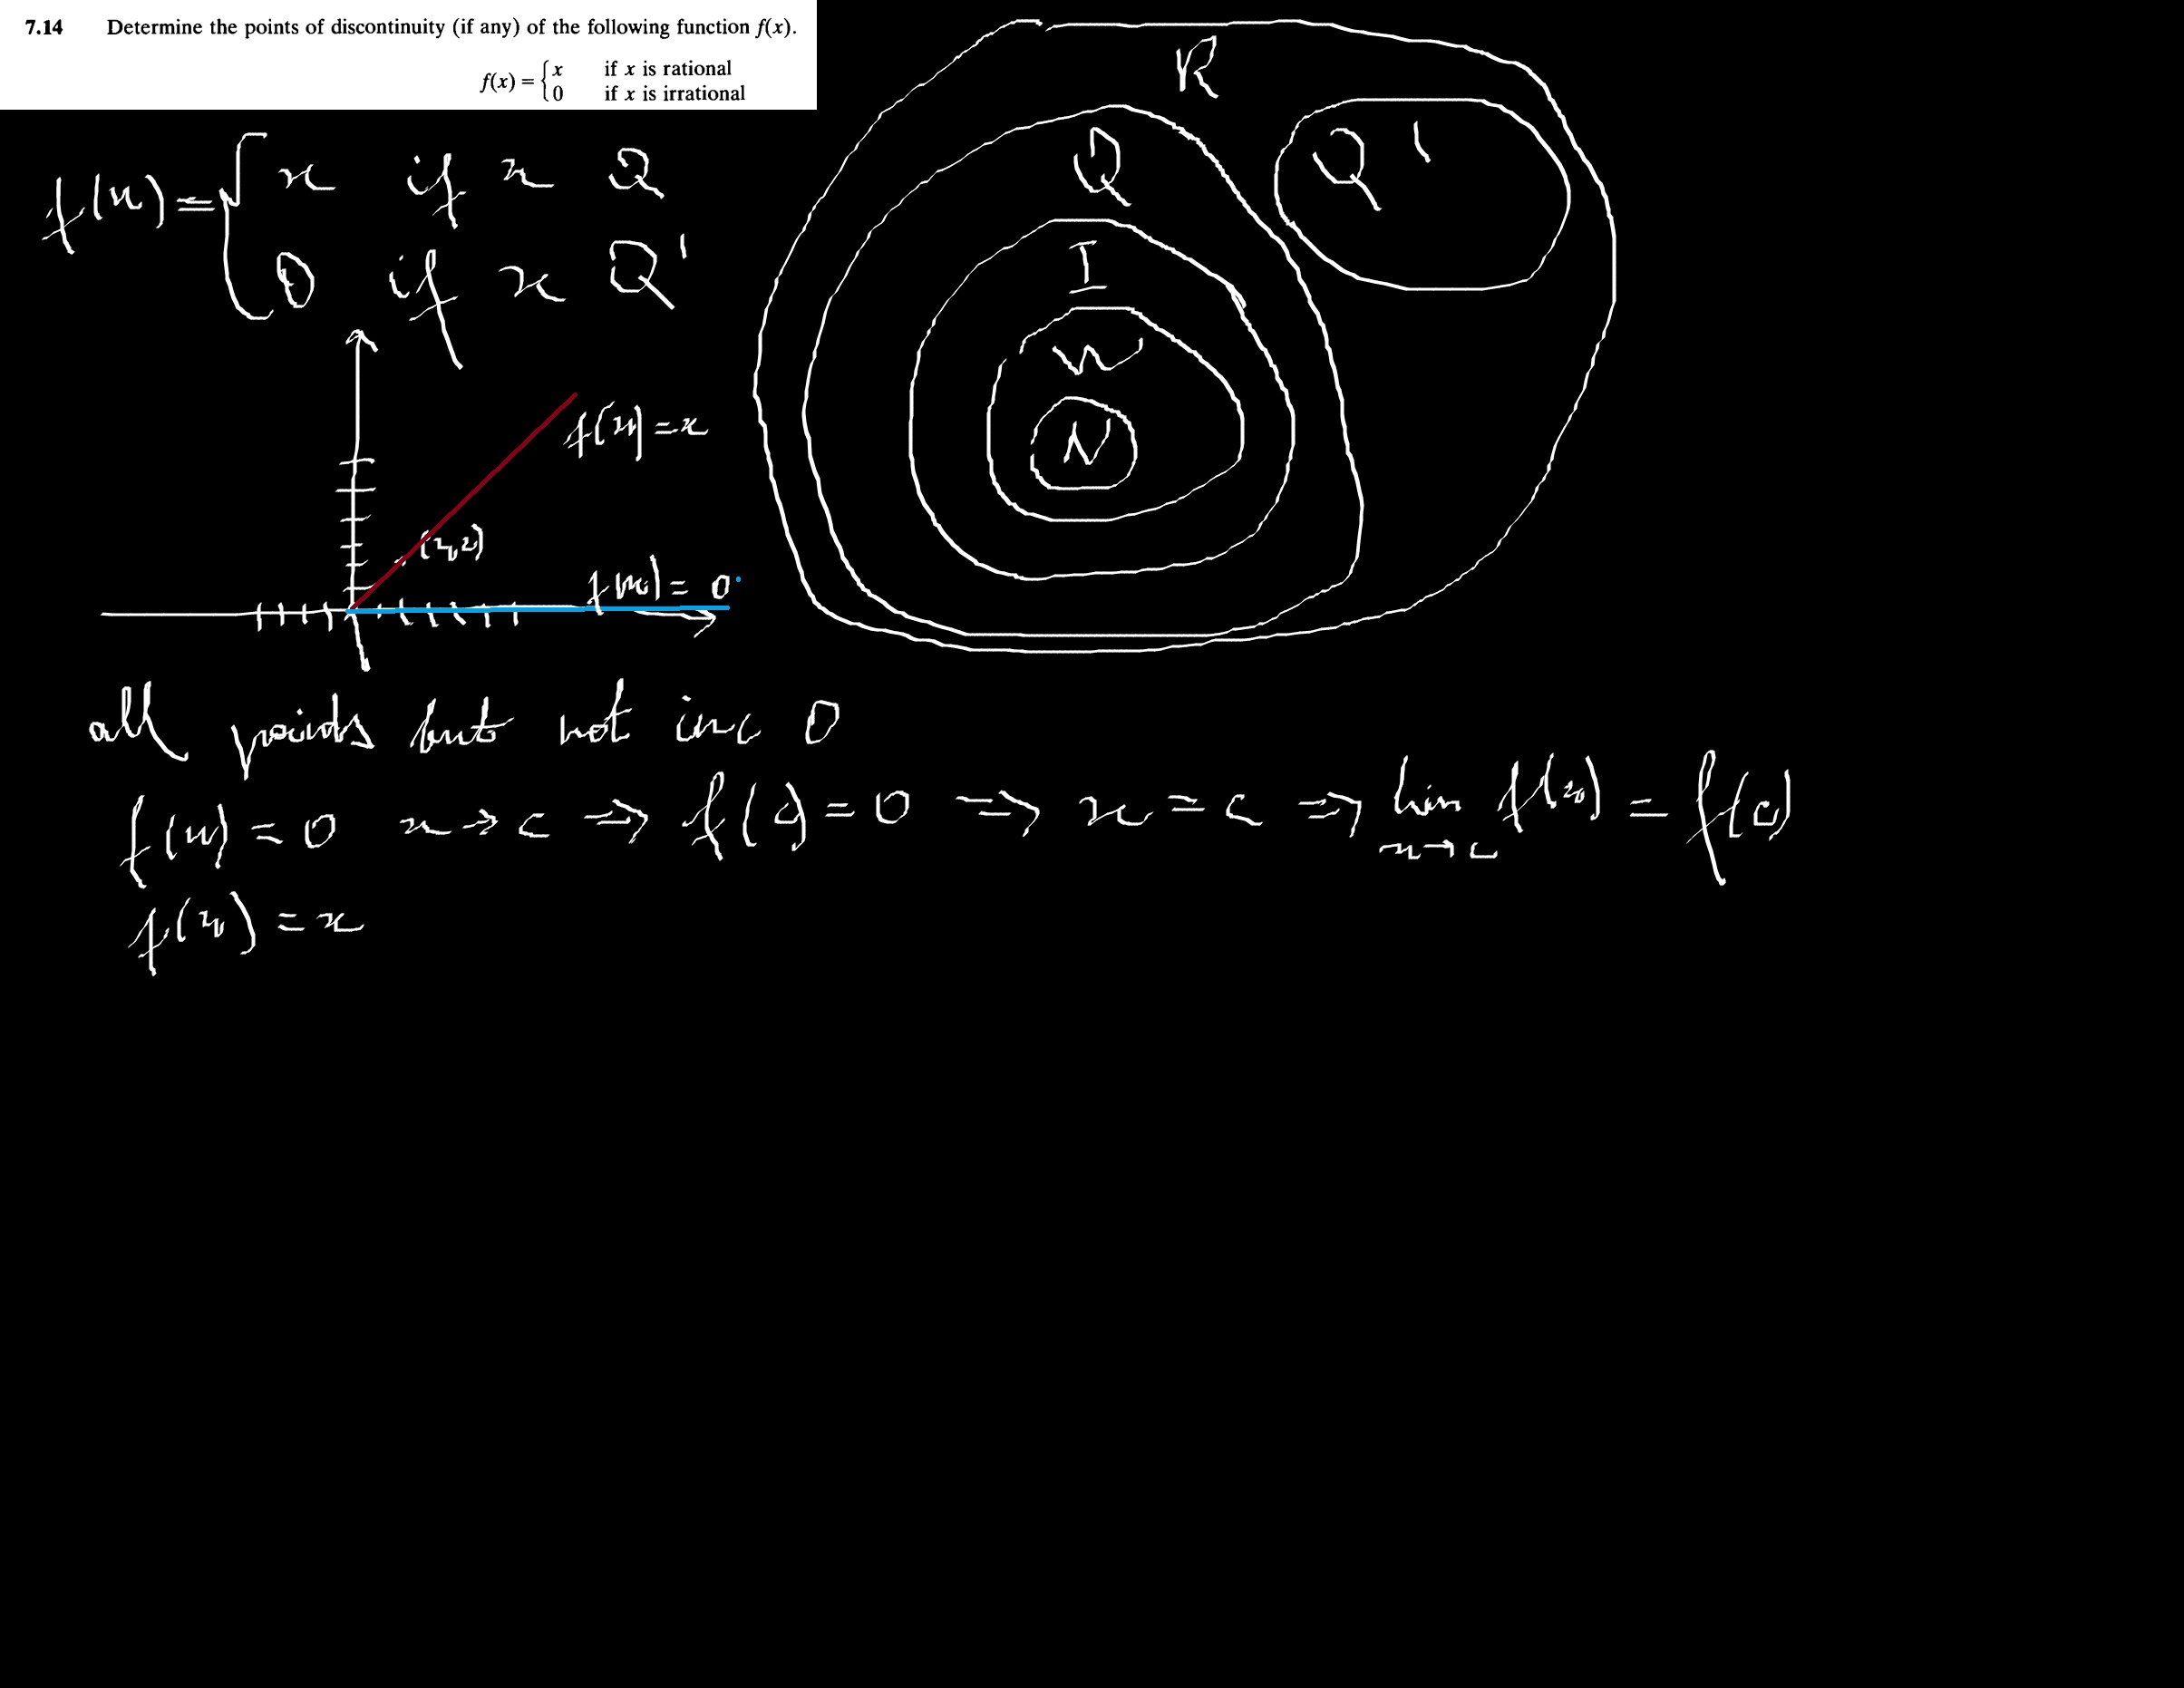 7.14 Determine the points of discontinuity (if any) of the following function f(x).
f(x) = { x if x is rational
0 if x is irrational
f(x) = { x if x Q
0 if x Q'
R
Q
Q'
I
W
N
f(x) = x
(x,x)
f(x) = 0
all points but not inc 0
f(x) = 0 x → c ⇒ f(c) = 0 ⇒ x = c ⇒ lim x→c f(x) = f(c)
f(x) = x